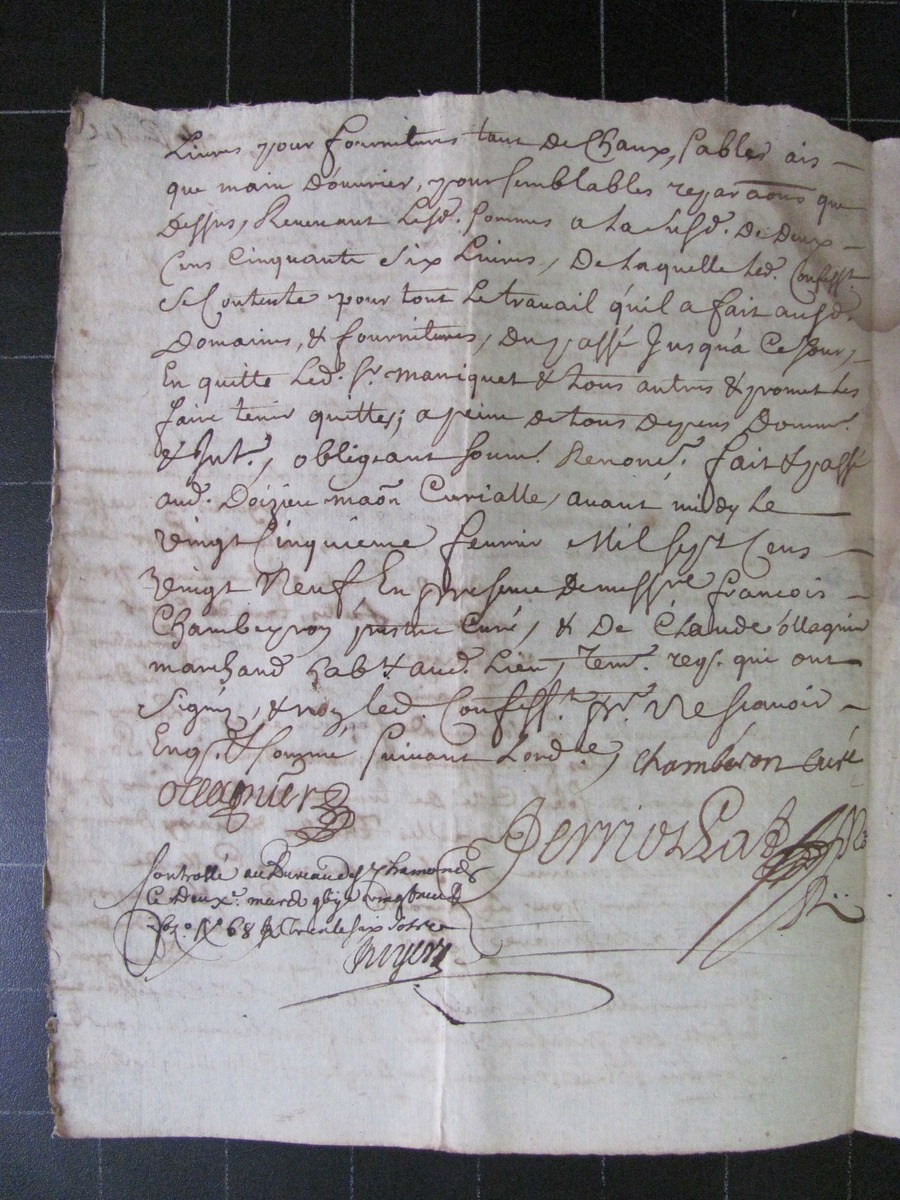 Livres pour fournitures tant de Chaux, sables ais
que main d'ouvrier, pour semblables reparãons que
Dessus, Revenant Lesd. sommes a La susd. De Deux
Cens Cinquante Six Livres, De Laquelle Led. Confesst.
Se Contente pour tout Le travail qu'il a fait ausd.
Domaines, & fournitures, Du passé Jusqu'a Ce Jour,
En quitte Led. Sr. maniquet & tous autres & promet Les
faire tenir quittes; a peine de tous Depens Domm.
& Int., obligeant soum. Renonc. fait & passé
aud. Doizieu maõn Curialle, avant midy Le
vingt Cinquieme fevrier Mil sept Cens
vingt Neuf, En presence De messre francois
Chambeyron prestre Curé, & De Claude ollagnier
marchand hab.t aud. Lieu, Tem. req. qui ont
Signé, & non led. Confesst. pr. Ne scavoir
Enq. & sommé suivant Lord.e, chambeiron Curé
ollagnier
Perriot
Controllé au Bureau de St Chamond
Ce Deuxe. mars vingt neuf
No 68 Trente six